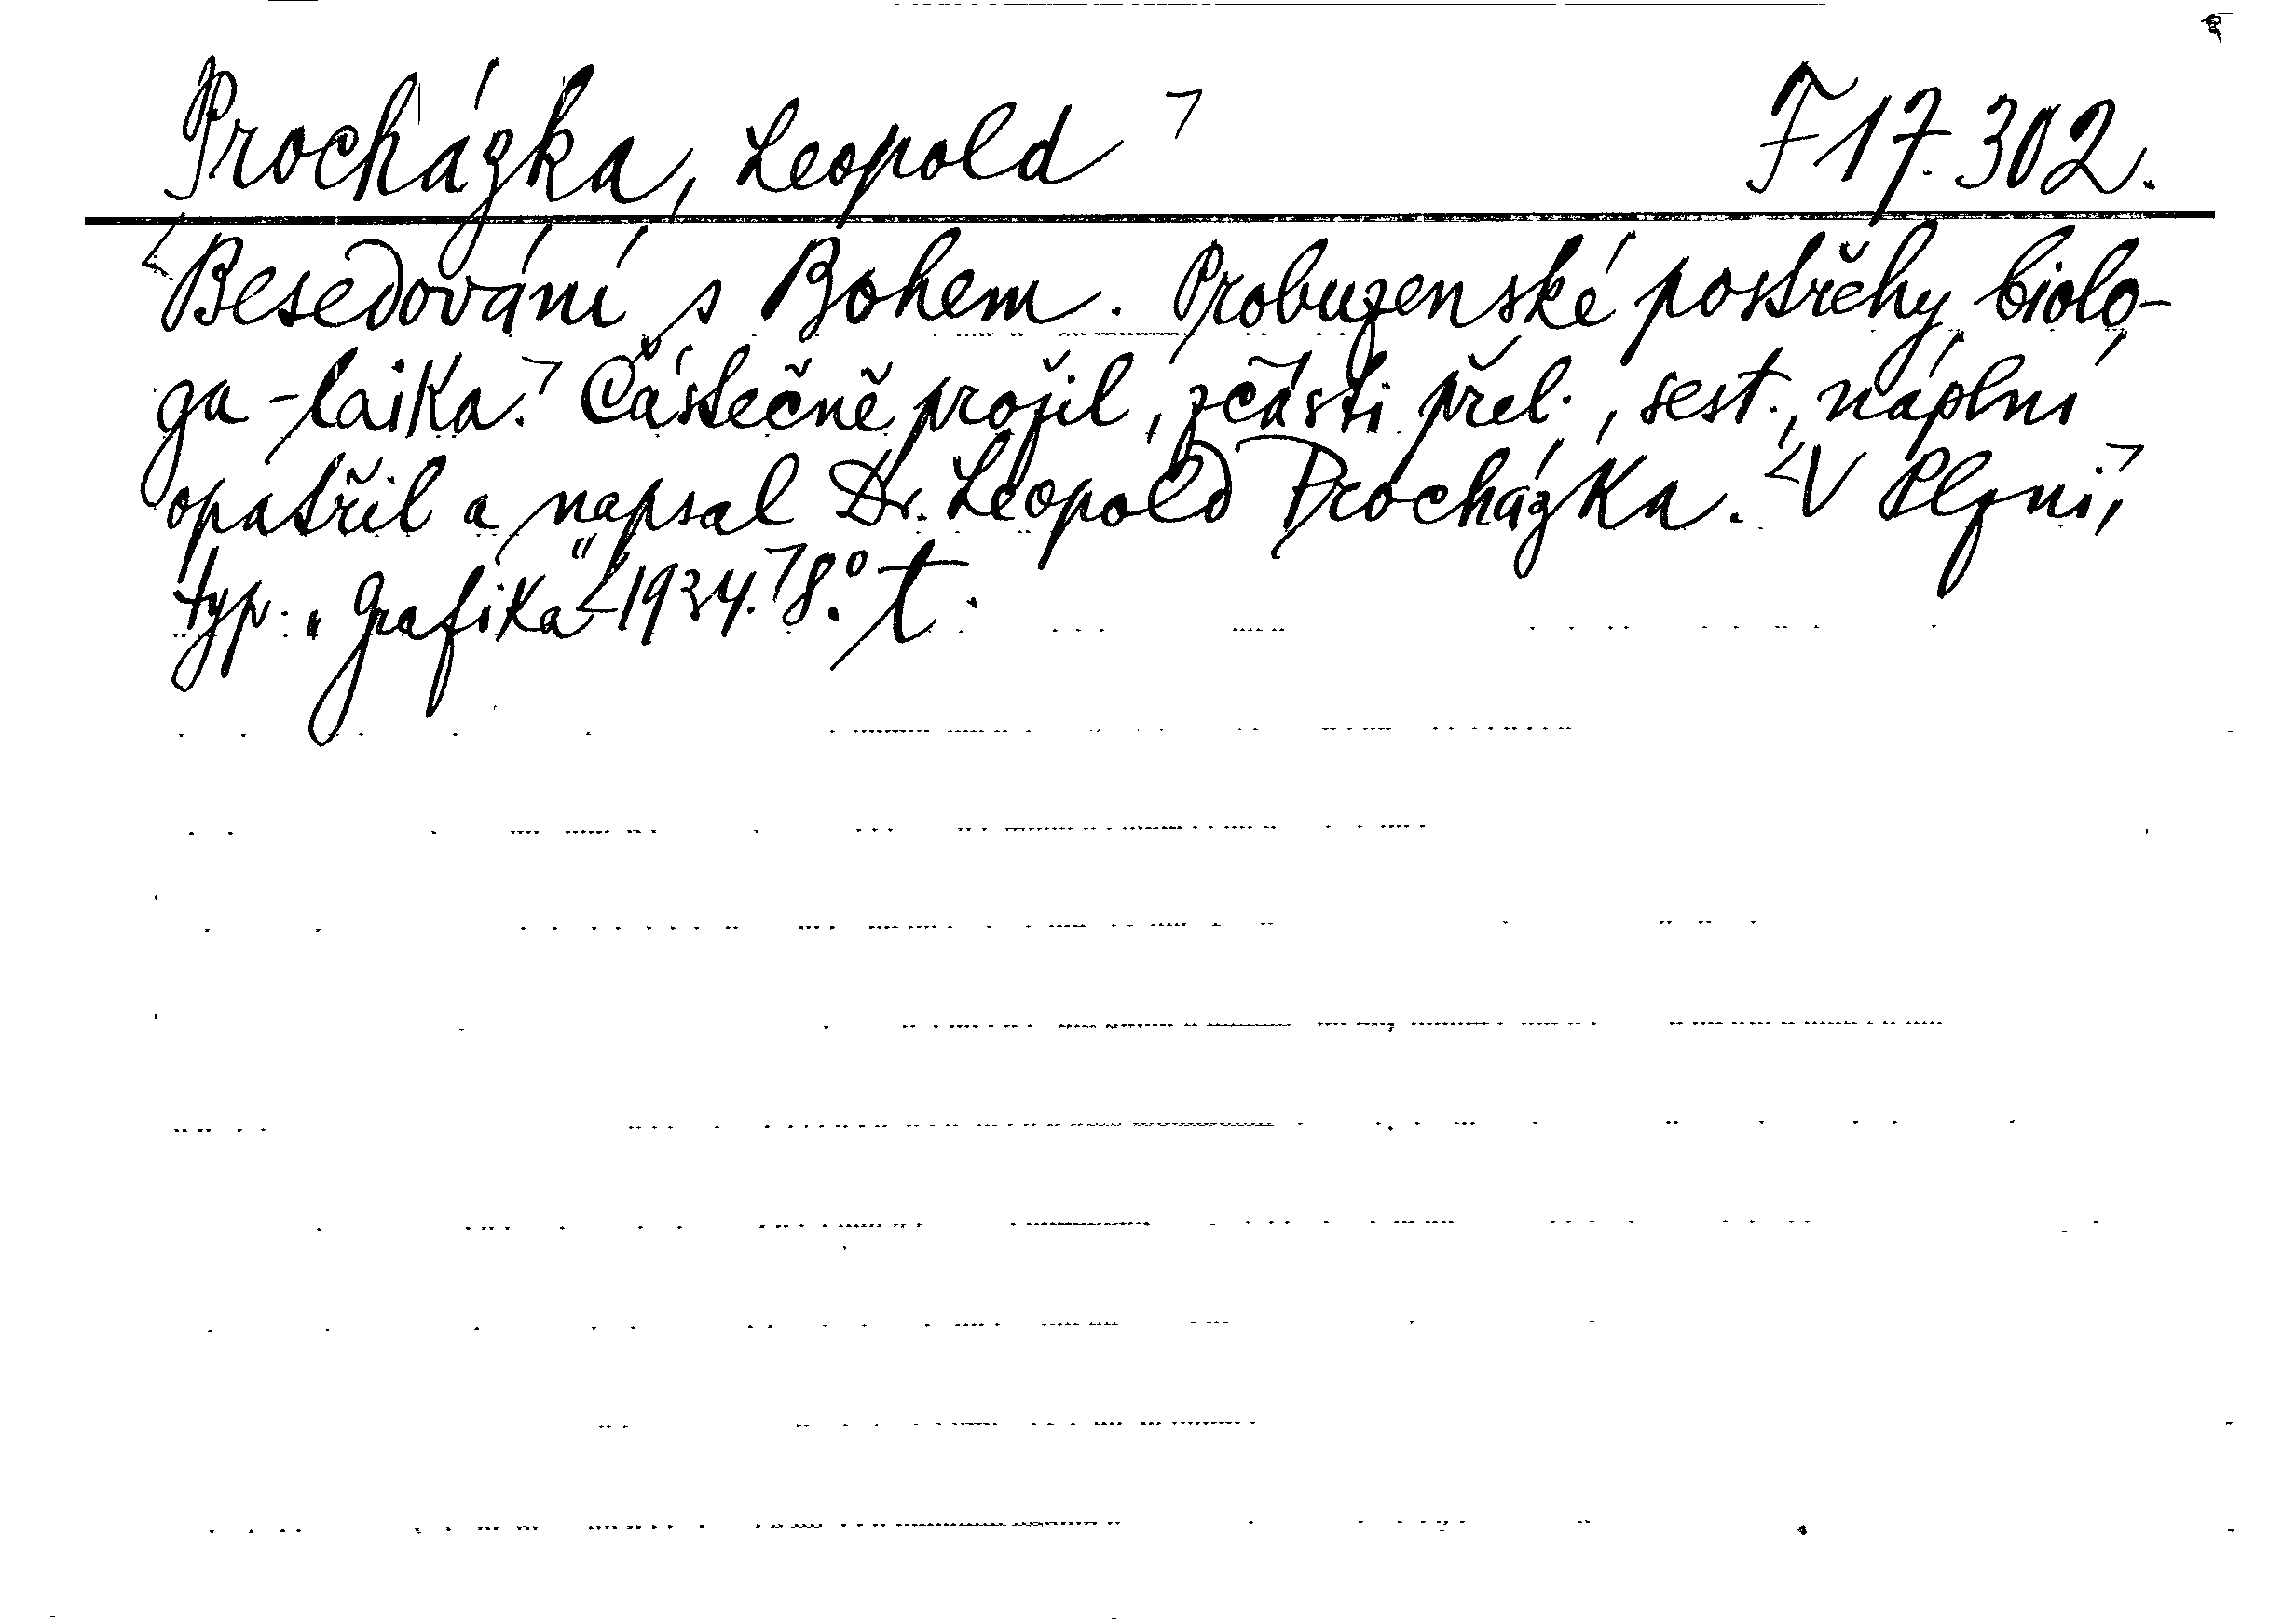 Procházka, Leopold ⌝ F 17.302.
<Besedování s Bohem. Probuzenské postřehy biolo-
ga-laika.⌝ Částečně prožil, zčásti přel., sest., náplní
opatřil a napsal Dr. Leopold Procházka. <V Plzni,⌝
typ. „Grafika" <1934.⌝ 8.° t.